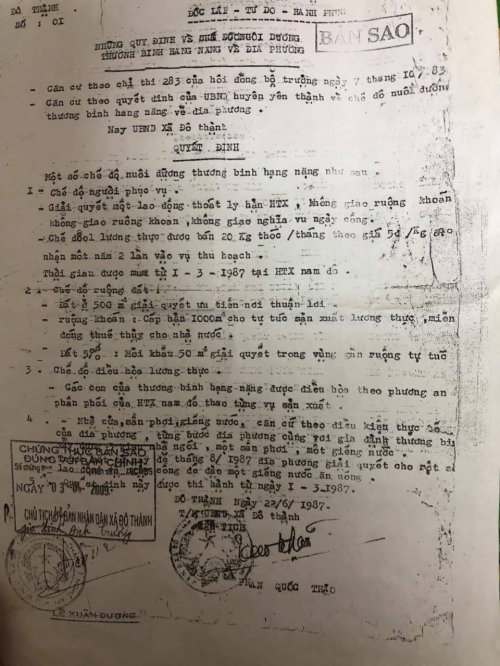 ĐÔ THÀNH.
SỐ : 01
ĐỘC LẬP - TỰ DO - HẠNH PHÚC
BẢN SAO
NHỮNG QUY ĐỊNH VỀ CHẾ ĐỘ NUÔI DƯỠNG
THƯƠNG BINH HẠNG NẶNG VỀ ĐỊA PHƯƠNG
- Căn cứ theo chỉ thị 283 của hội đồng bộ trưởng ngày 7 tháng 83
- Căn cứ theo quyết định của UBND huyện yên thành về chế độ nuôi dưỡng
thương binh hạng nặng về địa phương .
Nay UBND Xã Đô thành
QUYẾT ĐỊNH
Một số chế độ nuôi dưỡng thương binh hạng nặng như sau .
I - Chế độ người phục vụ .
- Giải quyết một lao động thoát ly hẳn HTX , không giao ruộng khoán
không giao ruộng khoán ,không giao nghĩa vụ ngày công.
- Chế lương thực được bán 20 Kg thóc /tháng theo giá 5đ /Kg
nhận một năm 2 lần vào vụ thu hoạch .
Thời gian được mua từ I - 3 -1987 tại HTX nam đô .
2 - Chế độ ruộng đất :
- Đất ở 500 m² giải quyết ưu tiên nơi thuận lợi .
- ruộng khoán : Cấp hạn 1000m² cho tự túc sản xuất lương thực ,miễn
đóng thuế thủy cho nhà nước .
- Đất 5% : Mỗi khẩu 50 m² giải quyết trong vùng gần ruộng tự túc
3 - Chế độ điều hòa lương thực .
- Các con của thương binh hạng-nặng được điều hòa theo phương án
phân phối của HTX nam đô theo từng vụ sản xuất .
4 - - Nhà cửa,sân phơi,giếng nước, căn cứ theo điều kiện thực
của địa phương , từng bước địa phương cùng với gia đình thương
nhà ngói , một sân phơi , một giếng nước .
tháng 8/ 1987 địa phương giải quyết cho một số
lao công để đào một giếng nước ăn uống .
này được thi hành từ ngày I - 3.1987.
ĐÔ THÀNH Ngày 22/6/ 1987.
T/M UBND Xã Đô thành
CHỦ TỊCH
PHAN QUỐC THẢO
CHỨNG THỰC BẢN SAO
ĐÚNG VỚI BẢN CHÍNH
Số chứng thực
NGÀY 03-04-2009
CHỦ TỊCH ỦY BAN NHÂN DÂN XÃ ĐÔ THÀNH
LÊ XUÂN DƯƠNG